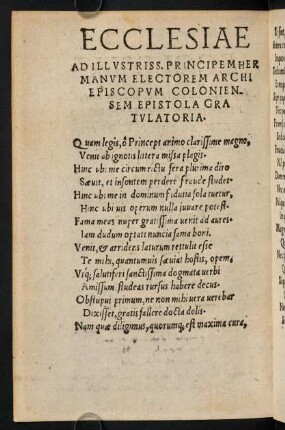 ECCLESIAE
AD ILLVSTRISS. PRINCIPEM HER
MANVM ELECTOREM ARCHI
EPISCOPVM COLONIEN.
SEM EPISTOLA GRA
TVLATORIA.
Quam legis, ô Princeps animo clarissime magno,
Venit ab ignotis littera missa plagis.
Hinc vbi me circum rictu fera plurima diro
Sæuit, et insontem perdere fraude studet.
Hinc vbi me in dominum fiducia sola tuetur,
Hinc vbi vis operum nulla iuuare potest.
Fama meas nuper gratissima venit ad aures.
Iam dudum optati nuncia fama boni.
Venit, & arridens laturum rettulit esse
Te mihi, quantumuis sæuiat hostis, opem,
Vtq; salutiferi sanctissima dogmata verbi
Amissum studeas rursus habere decus.
Obstupui primum, ne non mihi vera verebar
Dixisset, gratis fallere docta dolis.
Nam quæ diligimus, quorumq; est maxima cura,